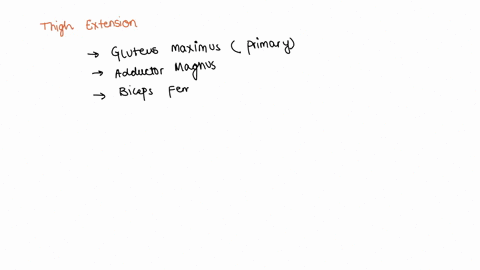 Thigh Extension
→ Gluteus Maximus (primary)
→ Adductor Magnus
→ Biceps Fem